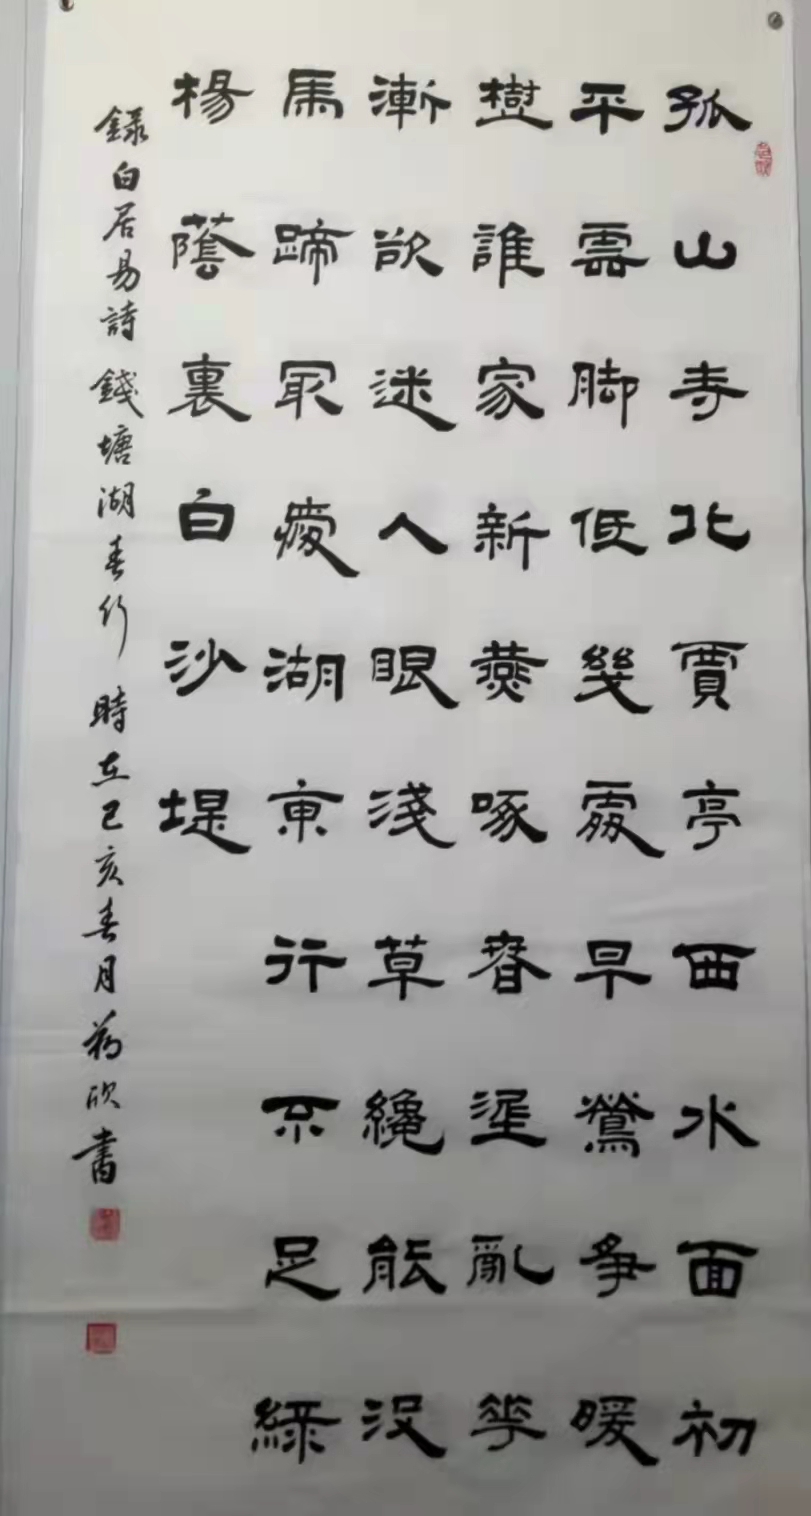 孤山寺北賈亭西水面初
平雲脚低幾處早鶯爭暖
樹誰家新燕啄春渥亂花
漸欲迷人眼淺草纔能没
馬蹄冣愛湖東行不足綠
楊蔭裏白沙堤
録白居易詩錢塘湖春行時在己亥春月 欣書